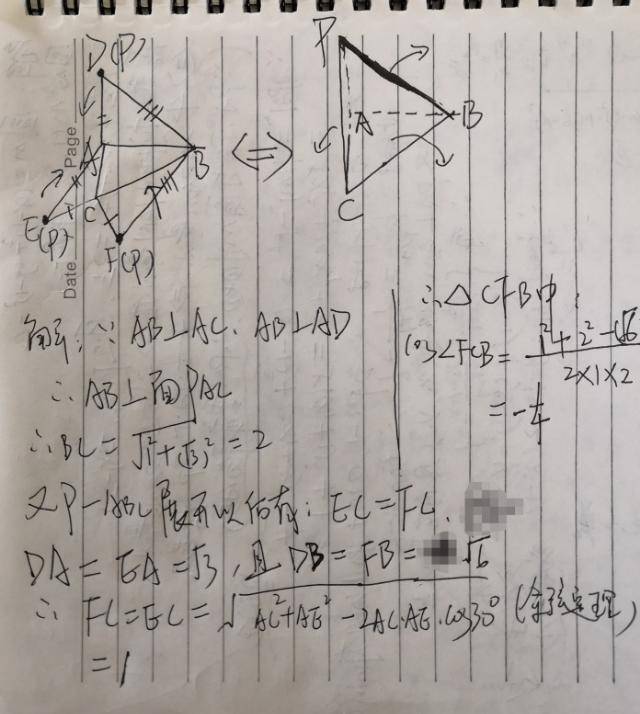 D(P)
A
B
C
E(P)
F(P)
P
A
B
C
Page
Date
解: ∵ AB⊥AC. AB⊥AD
∴ AB⊥面PAC
∴ BC = √(1²+(√3)²) = 2
又P-ABC展开以后有: EC=FC.
DA = EA = √3, 且 DB = FB = √6
∴ FC=EC= √(AC²+AE²-2AC·AE·cos30°) (余弦定理)
= 1
∴ △CFB中,
cos∠FCB = (1²+2²-(√6
2×1×2
= -1/4